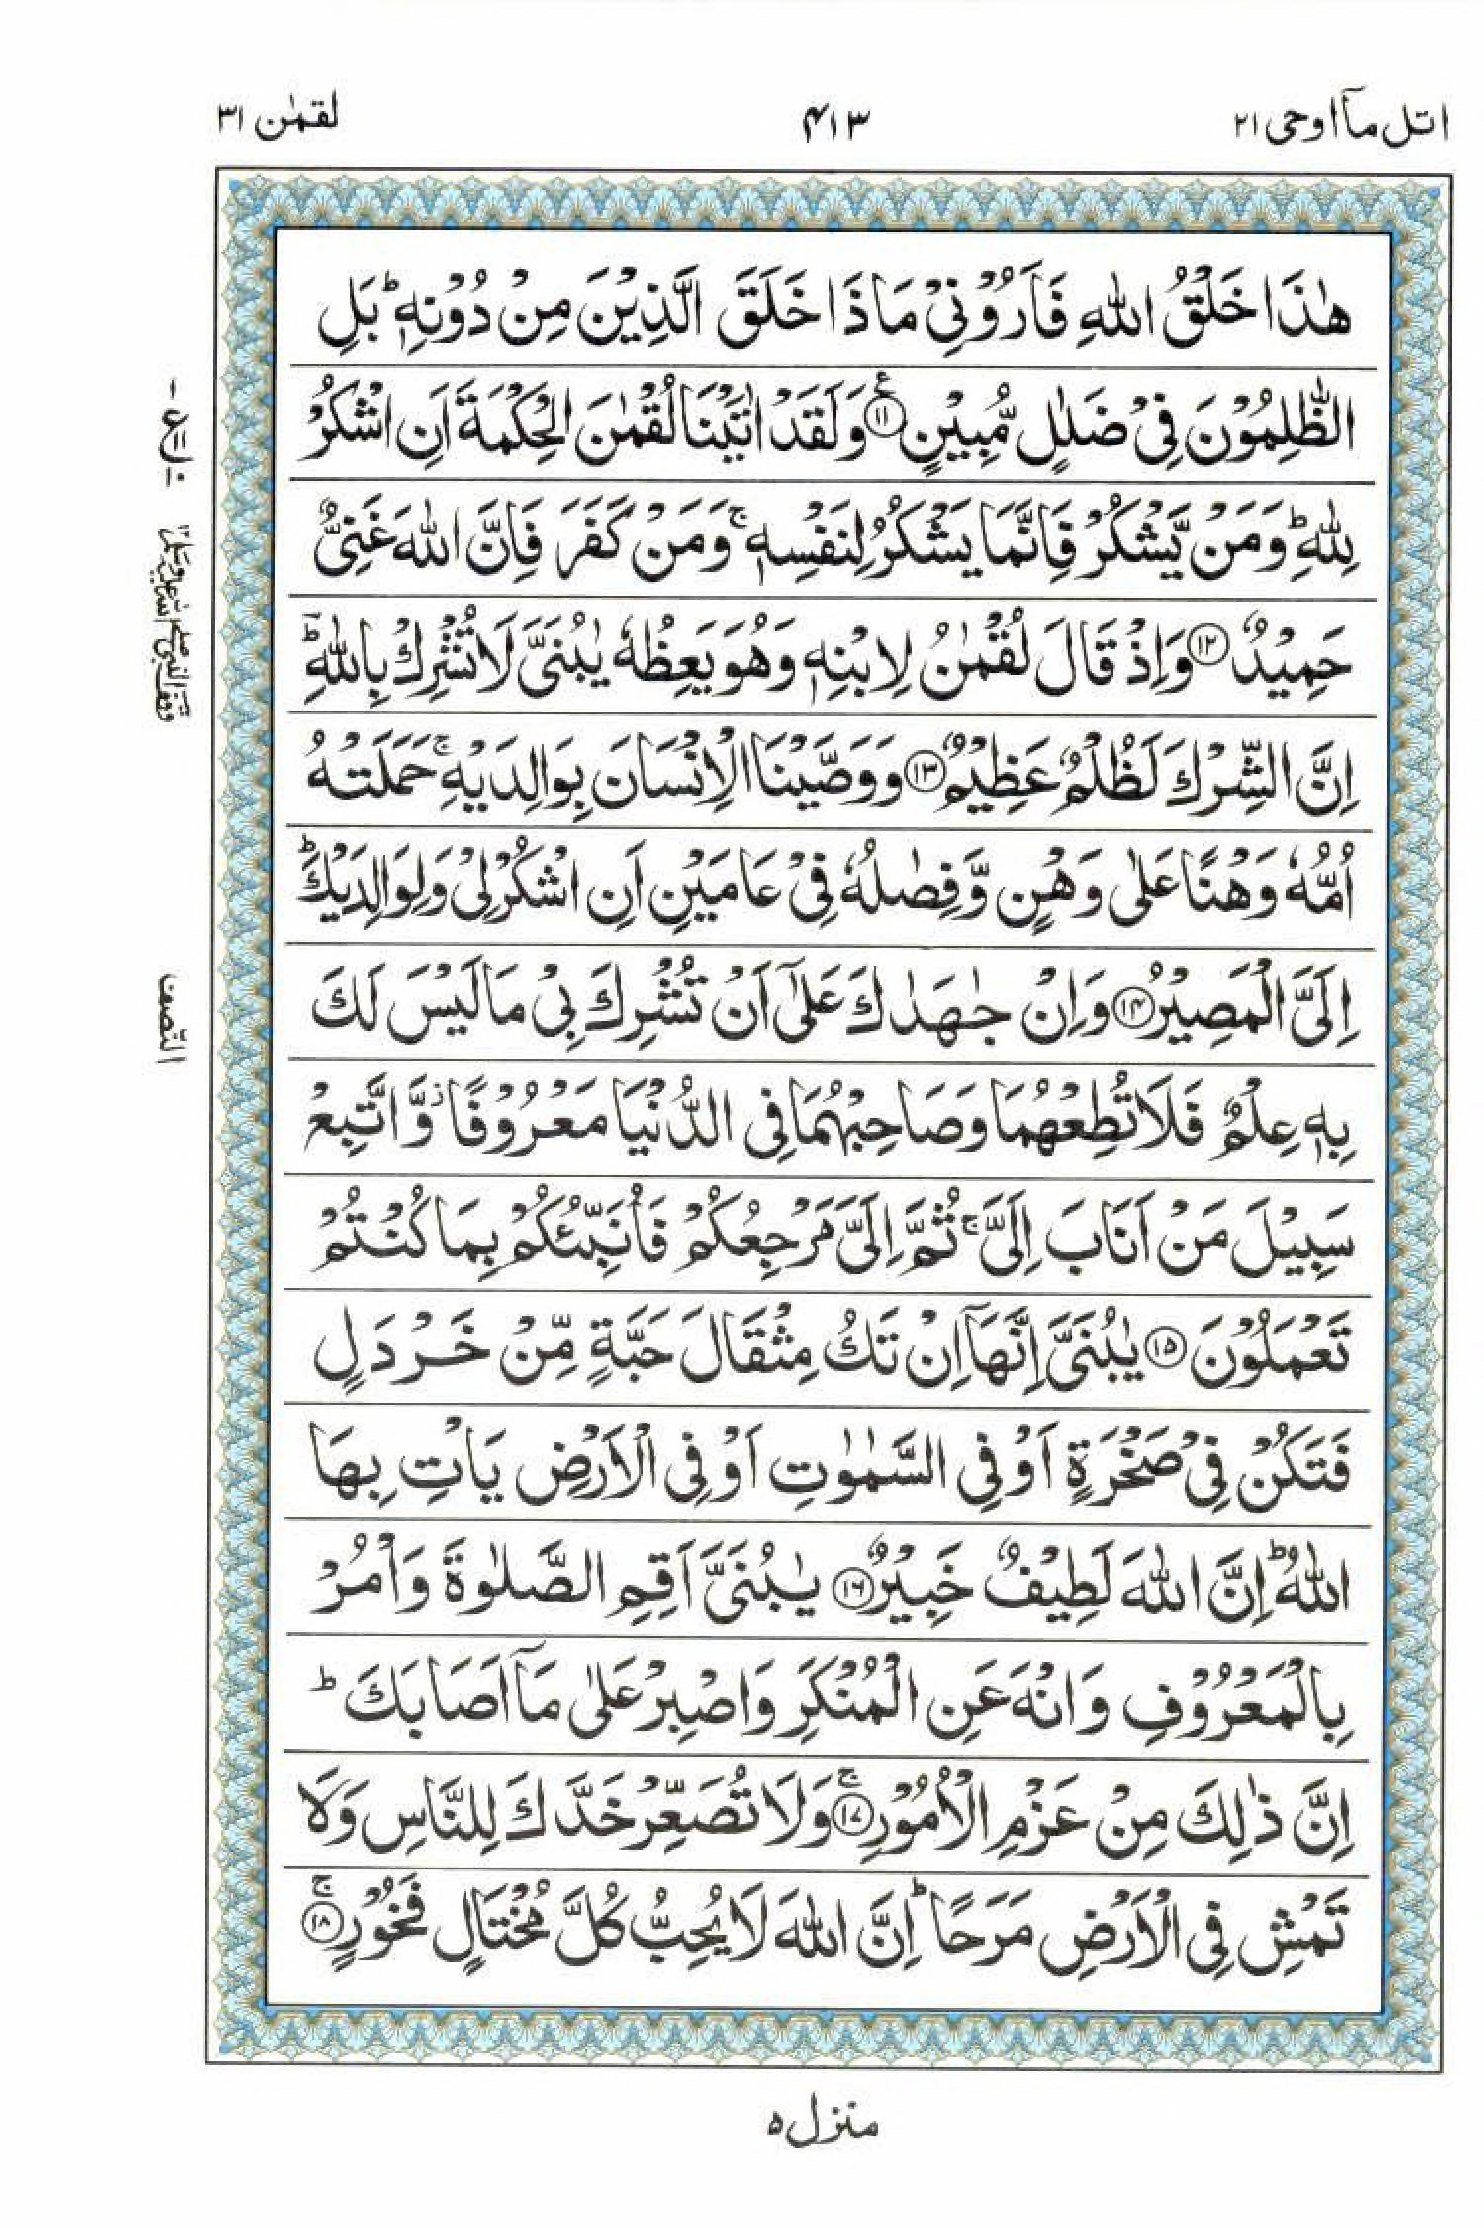 اتل مآ اوحی ۲۱
۴۱۳
لقمٰن ۳۱
هٰذَا خَلْقُ اللهِ فَاَرُوْنِیْ مَاذَا خَلَقَ الَّذِیْنَ مِنْ دُوْنِهٖؕ بَلِ
الظّٰلِمُوْنَ فِیْ ضَلٰلٍ مُّبِیْنٍ ﴿۱۱﴾ؑ وَلَقَدْ اٰتَیْنَا لُقْمٰنَ الْحِكْمَةَ اَنِ اشْكُرْ
لِلّٰهِؕ وَمَنْ یَّشْكُرْ فَاِنَّمَا یَشْكُرُ لِنَفْسِهٖۚ وَمَنْ كَفَرَ فَاِنَّ اللهَ غَنِیٌّ
حَمِیْدٌ ﴿۱۲﴾ وَاِذْ قَالَ لُقْمٰنُ لِابْنِهٖ وَهُوَ یَعِظُهٗ یٰبُنَیَّ لَا تُشْرِكْ بِاللهِؕ
اِنَّ الشِّرْكَ لَظُلْمٌ عَظِیْمٌ ﴿۱۳﴾ وَوَصَّیْنَا الْاِنْسَانَ بِوَالِدَیْهِۚ حَمَلَتْهُ
اُمُّهٗ وَهْنًا عَلٰی وَهْنٍ وَّفِصٰلُهٗ فِیْ عَامَیْنِ اَنِ اشْكُرْ لِیْ وَلِوَالِدَیْكَؕ
اِلَیَّ الْمَصِیْرُ ﴿۱۴﴾ وَاِنْ جٰهَدٰكَ عَلٰٓی اَنْ تُشْرِكَ بِیْ مَا لَیْسَ لَكَ
بِهٖ عِلْمٌ فَلَا تُطِعْهُمَا وَصَاحِبْهُمَا فِی الدُّنْیَا مَعْرُوْفًاؗ وَّاتَّبِعْ
سَبِیْلَ مَنْ اَنَابَ اِلَیَّۚ ثُمَّ اِلَیَّ مَرْجِعُكُمْ فَاُنَبِّئُكُمْ بِمَا كُنْتُمْ
تَعْمَلُوْنَ ﴿۱۵﴾ یٰبُنَیَّ اِنَّهَاۤ اِنْ تَكُ مِثْقَالَ حَبَّةٍ مِّنْ خَرْدَلٍ
فَتَكُنْ فِیْ صَخْرَةٍ اَوْ فِی السَّمٰوٰتِ اَوْ فِی الْاَرْضِ یَاْتِ بِهَا
اللهُؕ اِنَّ اللهَ لَطِیْفٌ خَبِیْرٌ ﴿۱۶﴾ یٰبُنَیَّ اَقِمِ الصَّلٰوةَ وَاْمُرْ
بِالْمَعْرُوْفِ وَانْهَ عَنِ الْمُنْكَرِ وَاصْبِرْ عَلٰی مَاۤ اَصَابَكَؕ
اِنَّ ذٰلِكَ مِنْ عَزْمِ الْاُمُوْرِ ﴿۱۷﴾ۚ وَلَا تُصَعِّرْ خَدَّكَ لِلنَّاسِ وَلَا
تَمْشِ فِی الْاَرْضِ مَرَحًاؕ اِنَّ اللهَ لَا یُحِبُّ كُلَّ مُخْتَالٍ فَخُوْرٍ ﴿۱۸﴾ۚ
النّصف
منزل ۵